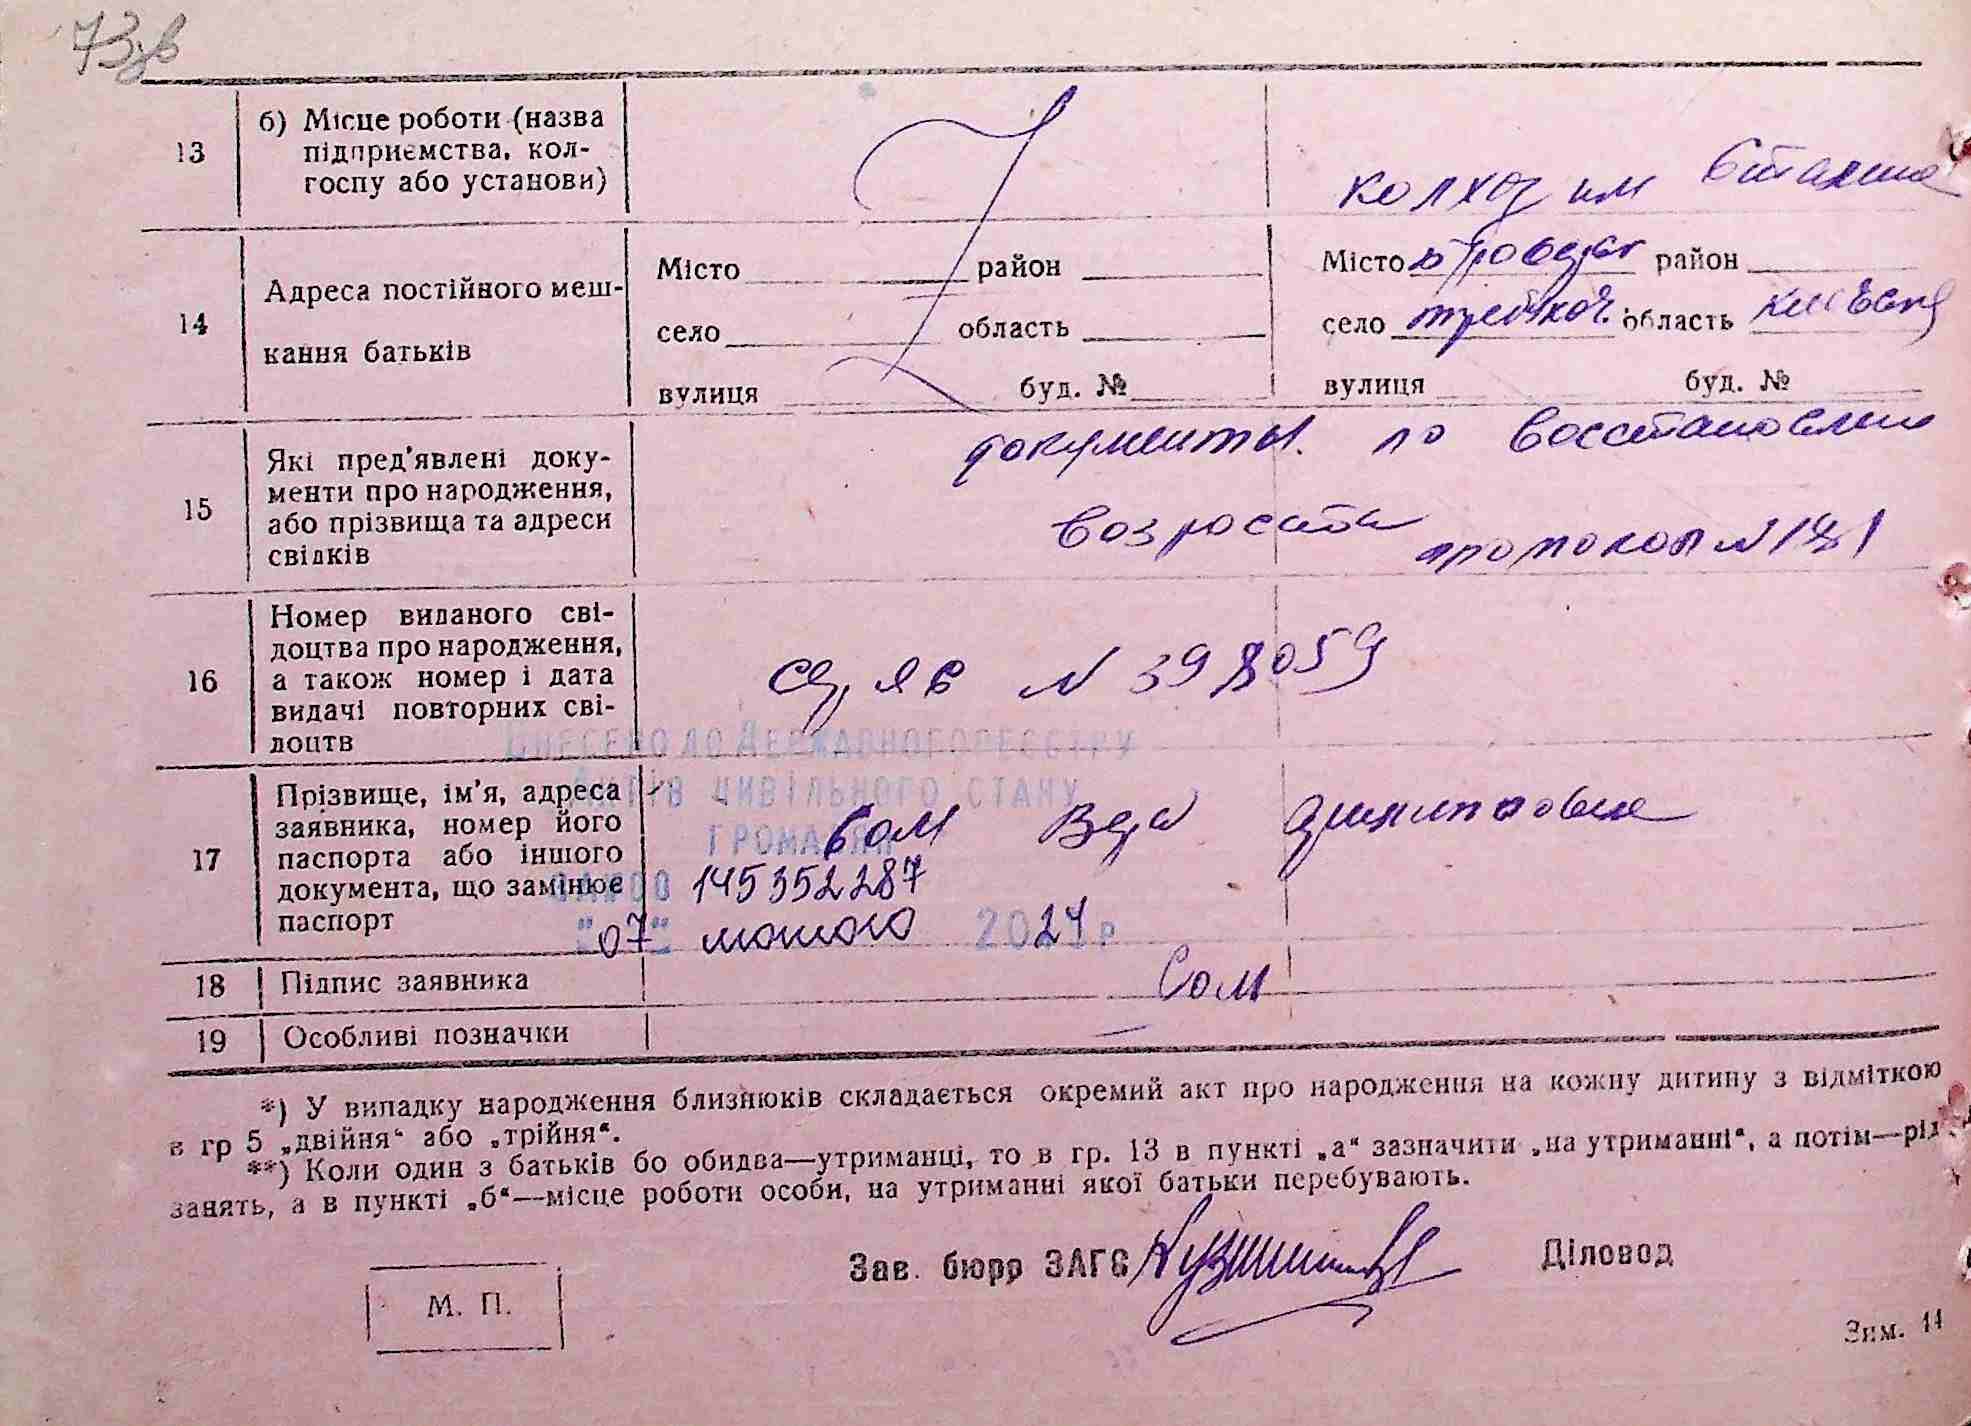 73зв
13
б) Місце роботи (назва
підприємства, кол-
госпу або установи)
колхоз им Сталина
14
Адреса постійного меш-
кання батьків
Місто район
село область
вулиця буд. №
Місто район
село область
вулиця буд. №
15
Які пред'явлені доку-
менти про народження,
або прізвища та адреси
свідків
документы. по восстановлению
возраста протокол N
16
Номер виданого сві-
доцтва про народження,
а також номер і дата
видачі повторних сві-
доцтв
N 398059
Внесено до Державного реєстру
актів цивільного стану
громадян
17
Прізвище, ім'я, адреса
заявника, номер його
паспорта або іншого
документа, що замінює
паспорт
Сом Вера
145352287
"07" лютого 2024 р
18
Підпис заявника
Сом
19
Особливі позначки
*) У випадку народження близнюків складається окремий акт про народження на кожну дитину з відміткою
в гр 5 „двійня“ або „трійня“.
**) Коли один з батьків бо обидва—утриманці, то в гр. 13 в пункті „а“ зазначити „на утриманні“, а потім—рід
занять, а в пункті „б“—місце роботи особи, на утриманні якої батьки перебувають.
Зав. бюрр ЗАГС
Діловод
М. П.
Зим. 14